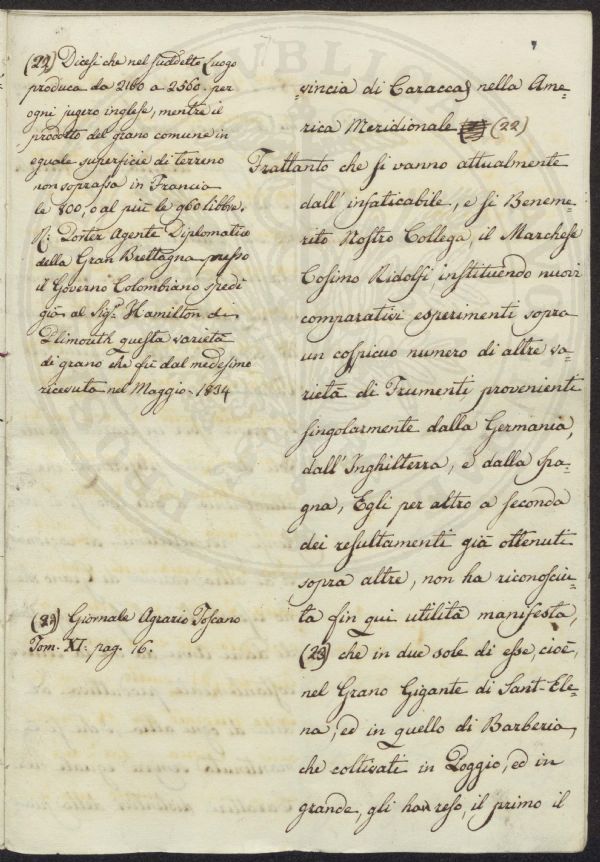 (22) Dicesi che nel suddetto luogo
produca da 2160 a 2560. per
ogni jugero inglese, mentre il
prodotto del grano comune in
eguale superficie di terreno
non soprassa in Francia
le 800, o al più le 960 libbre.
R: Porter Agente Diplomatico
della Gran Brettagna presso
il Governo Colombiano spedì
già al Sigr. Hamilton di
Plimouth questa varietà
di grano che fù dal medesimo
ricevuta nel Maggio - 1834
(23) Giornale Agrario Toscano
Tom. XI: pag. 16.
=vincia di Caraccas nella Ame=
rica Meridionale (22)
Trattanto che si vanno attualmente
dall' infaticabile, e sì Beneme=
rito Nostro Collega, il Marchese
Cosimo Ridolfi instituendo nuovi
comparativi esperimenti sopra
un cospicuo numero di altre va=
rietà di Frumenti provenienti
singolarmente dalla Germania,
dall' Inghilterra, e dalla Spa=
gna, Egli per altro a seconda
dei resultamenti già ottenuti
sopra altre, non ha riconosciu=
ta fin qui utilità manifesta,
(23) che in due sole di esse, cioè,
nel Grano Gigante di Sant-Ele=
na, ed in quello di Barberia,
che coltivati in Poggio, ed in
grande, gli han reso, il primo il